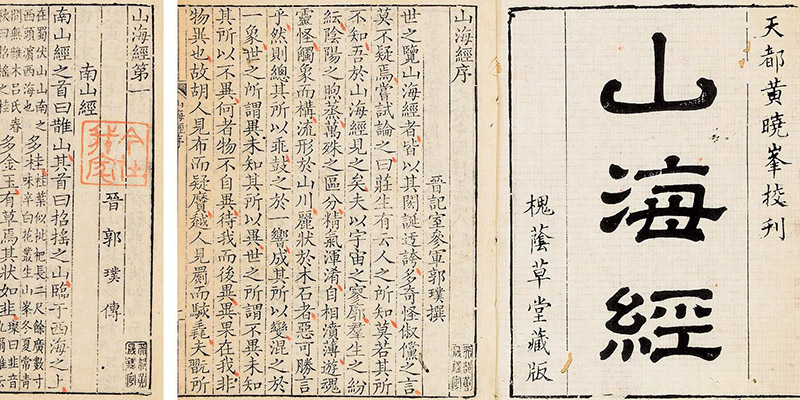 天都黃曉峯挍刊
山海經
槐蔭草堂藏版
山海經序
晉記室參軍郭璞撰
世之覽山海經者皆以其閎誕迂誇多奇怪俶儻之言
莫不疑焉嘗試論之曰莊生有云人之所知莫若其所
不知吾於山海經見之矣夫以宇宙之寥廓羣生之紛
紜陰陽之煦蒸萬殊之區分精氣渾淆自相濆薄遊魂
靈怪觸象而構流形於山川麗狀於木石者惡可勝言
乎然則總其所以乖鼓之於一響成其所以變混之於
一象世之所謂異未知其所以異世之所謂不異未知
其所以不異何者物不自異待我而後異異果在我非
物異也故胡人見布而疑黂越人見罽而駭毳夫翫所
山海經第一
晉郭璞傳
南山經
南山經之首曰䧿山其首曰招摇之山臨于西海之上
在蜀伏山山南之
西頭濱西海也
多桂
桂葉似枇杷長二尺餘廣數寸
味辛白花叢生山峯冬夏常青
間無雜木呂氏春
秋曰招搖之桂
多金玉有草焉其狀如韭
璨曰韭音